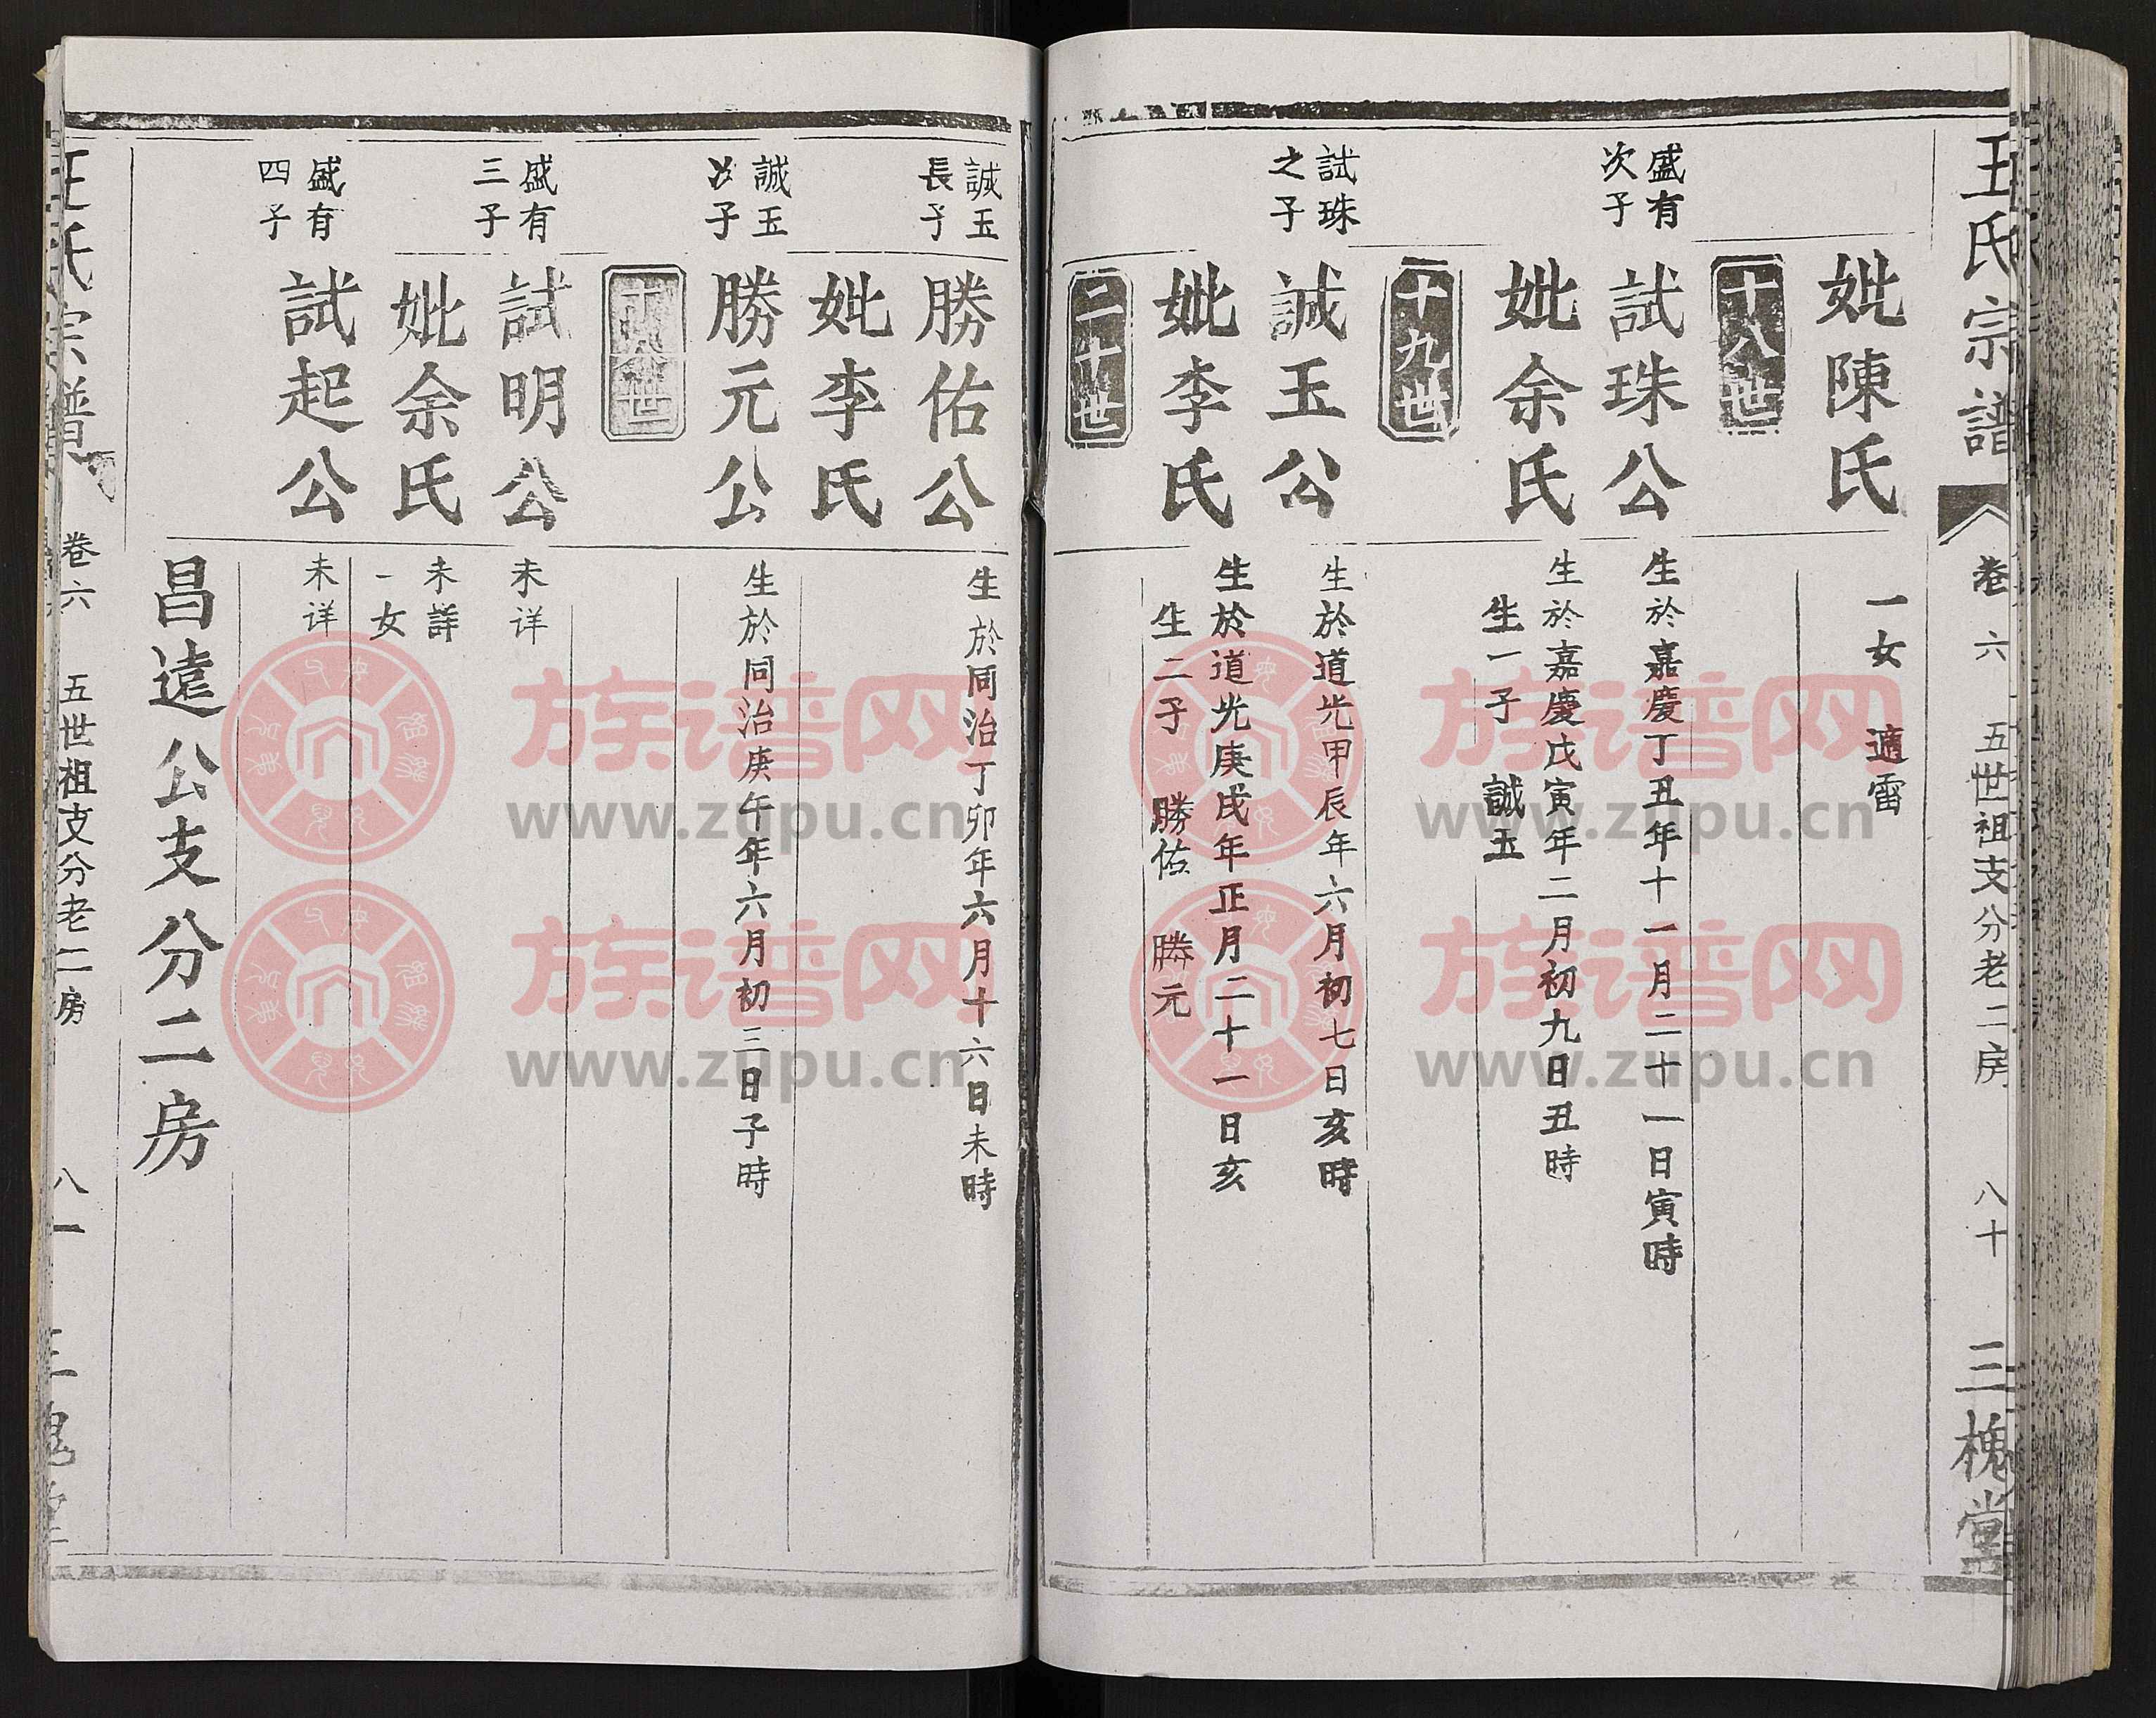 王氏宗譜
卷六
五世祖支分老二房
八十
三槐堂
妣陳氏
一女 適雷
十八世
盛有
次子
試珠公
生於嘉慶丁丑年十一月二十一日寅時
妣余氏
生於嘉慶戊寅年二月初九日丑時
生一子 誠玉
十九世
試珠
之子
誠玉公
生於道光甲辰年六月初七日亥時
妣李氏
生於道光庚戌年正月二十一日亥
生二子 勝佑 勝元
二十世
誠玉
長子
勝佑公
生於同治丁卯年六月十六日未時
妣李氏
誠玉
次子
勝元公
生於同治庚午年六月初三日子時
十八世
盛有
三子
試明公
未详
妣余氏
未詳
一女
盛有
四子
試起公
未详
昌遠公支分二房
王氏宗譜
卷六
五世祖支分老二房
八一
三槐堂
族谱网
www.zupu.cn
族谱网
www.zupu.cn
族谱网
www.zupu.cn
族谱网
www.zupu.cn